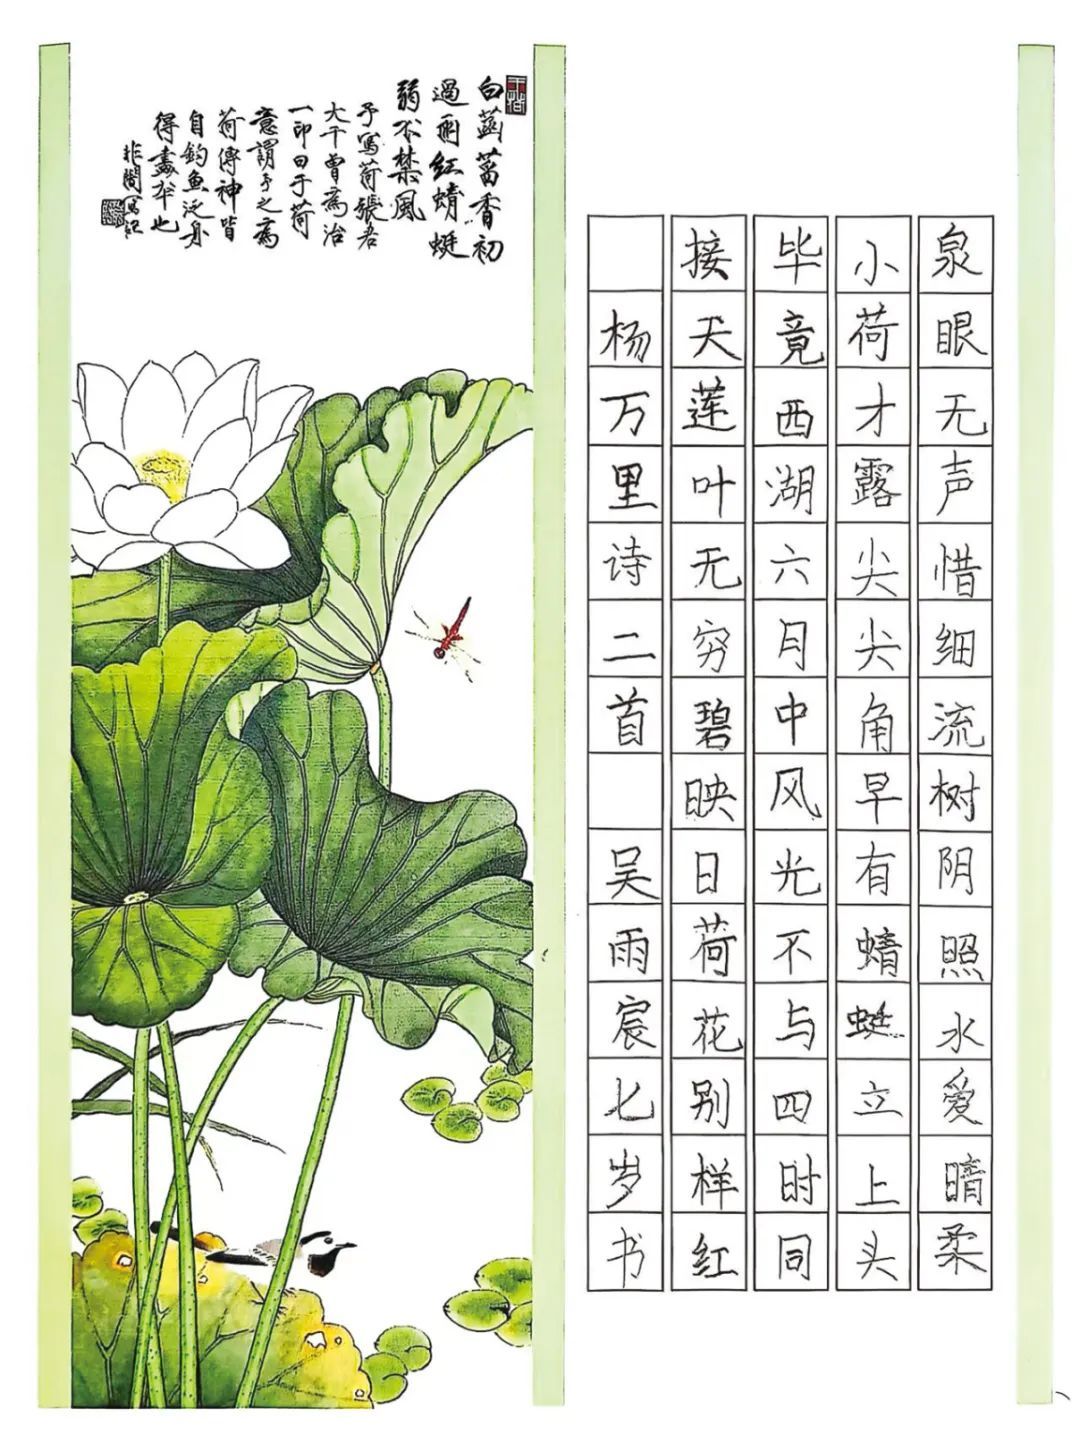 泉眼无声惜细流树阴照水爱晴柔
小荷才露尖尖角早有蜻蜓立上头
毕竟西湖六月中风光不与四时同
接天莲叶无穷碧映日荷花别样红
杨万里诗二首 吴雨宸七岁书
白菡萏香初
過雨紅蜻蜓
弱不禁風
予寫荷張君
大千曾為治
一印曰于荷
意謂予之為
荷傳神皆
自釣魚泛舟
得畫本也
非闇寫記